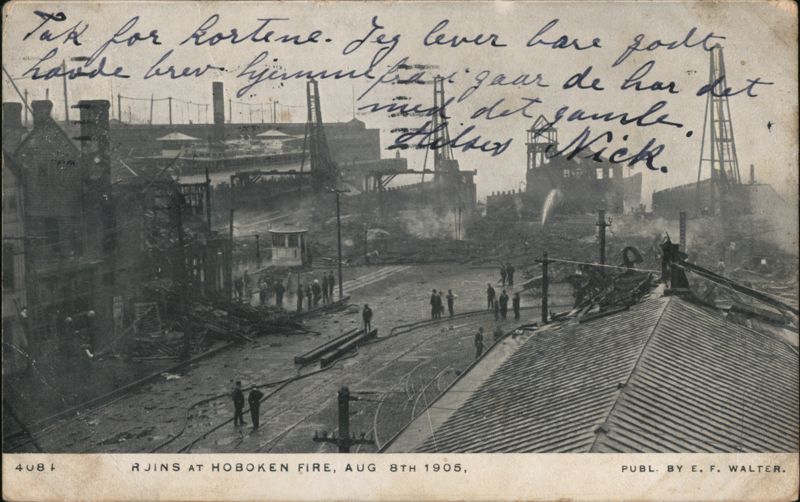 Tak for kortene. Jeg lever bare godt
havde brev hjemmefra i gaar de har det
med det gamle.
Hilsen Nick.
4084 RUINS AT HOBOKEN FIRE, AUG 8TH 1905, PUBL. BY E. F. WALTER.